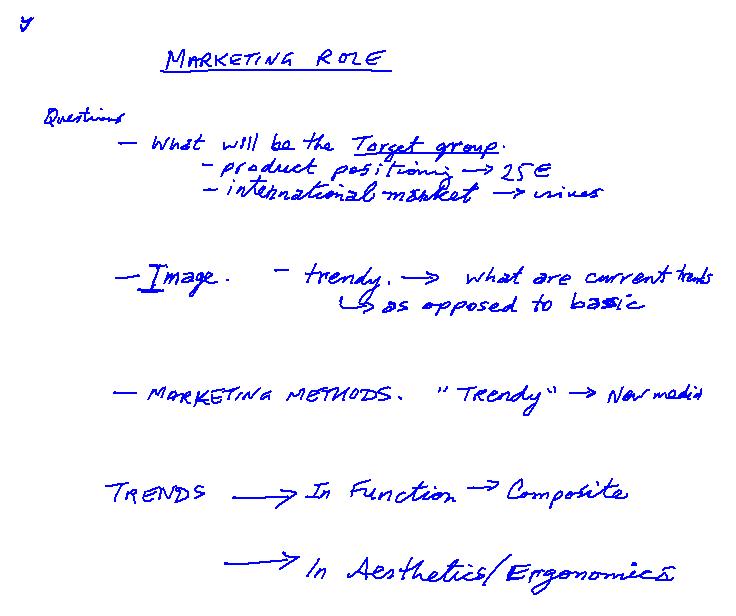 MARKETING ROLE
Questions
- What will be the Target group.
- product positioning → 25€
- international market →
- Image. - trendy. → what are current trends
↳ as opposed to basic
- MARKETING METHODS. "Trendy" → New media
TRENDS → In Function → Composite
→ In Aesthetics/Ergonomics